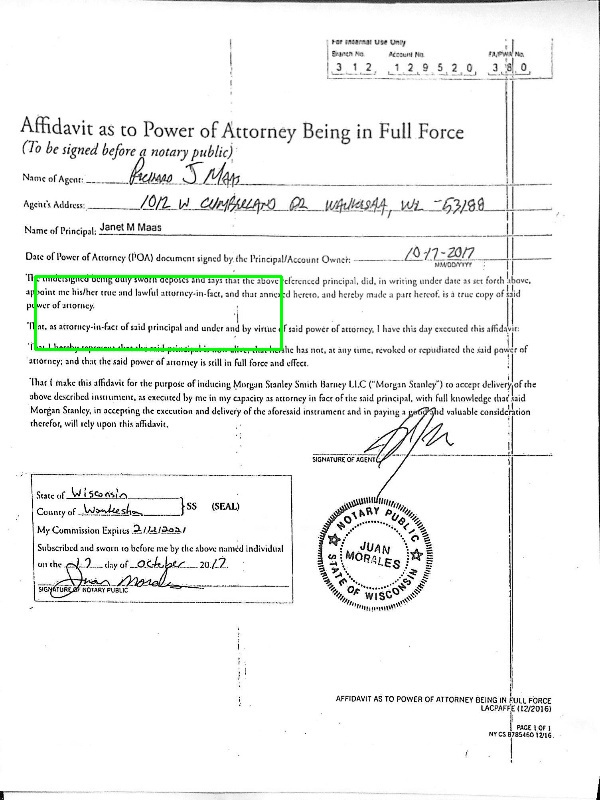 For Internal Use Only
Branch No. Account No. FA/PWA No.
3 1 2 1 2 9 5 2 0 3 8 0
Affidavit as to Power of Attorney Being in Full Force
(To be signed before a notary public)
Name of Agent: Richard J Maas
Agent's Address: 1012 W Cumberland DR Waukesha, WI - 53188
Name of Principal: Janet M Maas
Date of Power of Attorney (POA) document signed by the Principal/Account Owner: 10-17-2017
MM/DD/YYYY
The undersigned being duly sworn deposes and says that the above referenced principal, did, in writing under date as set forth above,
appoint me his/her true and lawful attorney-in-fact, and that annexed hereto, and hereby made a part hereof, is a true copy of said
power of attorney.
That, as attorney-in-fact of said principal and under and by virtue of said power of attorney, I have this day executed this affidavit.
That I hereby represent that the said principal is now alive, that he/she has not, at any time, revoked or repudiated the said power of
attorney; and that the said power of attorney is still in full force and effect.
That I make this affidavit for the purpose of inducing Morgan Stanley Smith Barney LLC ("Morgan Stanley") to accept delivery of the
above described instrument, as executed by me in my capacity as attorney in fact of the said principal, with full knowledge that said
Morgan Stanley, in accepting the execution and delivery of the aforesaid instrument and in paying a good and valuable consideration
therefor, will rely upon this affidavit.
SIGNATURE OF AGENT
State of Wisconsin
County of Waukesha
}SS (SEAL)
My Commission Expires 2/12/2021
Subscribed and sworn to before me by the above named individual
on the 17 day of October 2017
Juan Morales
SIGNATURE OF NOTARY PUBLIC
NOTARY PUBLIC
JUAN
MORALES
STATE OF WISCONSIN
AFFIDAVIT AS TO POWER OF ATTORNEY BEING IN FULL FORCE
LACPAFFE (12/2016)
PAGE 1 OF 1
NY CS 8785460 12/16